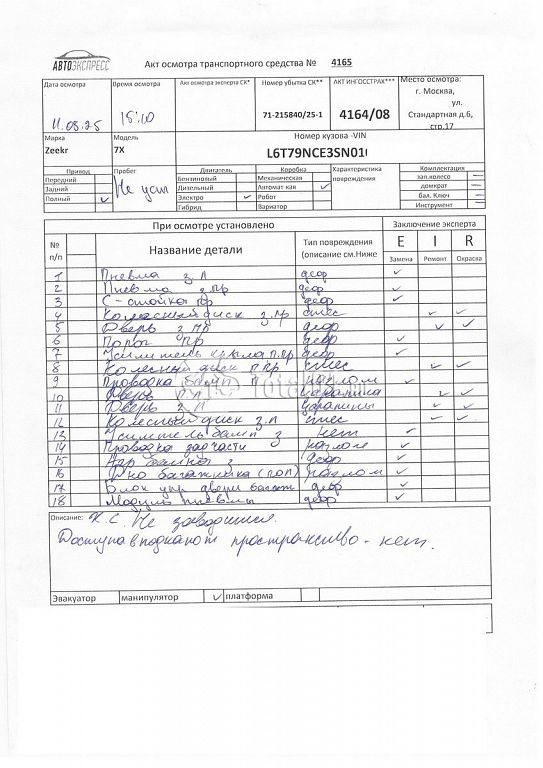 АВТОЭКСПРЕСС
Акт осмотра транспортного средства № 4165
Дата осмотра 11.08.25
Время осмотра 15:10
Акт осмотра эксперта СК*
Номер убытка СК** 71-215840/25-1
АКТ ИНГОССТРАХ*** 4164/08
Место осмотра: г. Москва, ул. Стандартная д.6, стр.17
Марка Zeekr
Модель 7X
Номер кузова -VIN
L6T79NCE3SN01
Привод
Передний
Задний
Полный ✓
Пробег Не уст
Двигатель
Бензиновый
Дизельный
Электро ✓
Гибрид
Коробка
Механическая
Автомат кая ✓
Робот
Вариатор
Характеристика повреждения
Комплектация
зап.колесо –
домкрат –
бал. Ключ –
Инструмент –
При осмотре установлено
Заключение эксперта
№ п/п
Название детали
Тип повреждения (описание см.Ниже
E I R
Замена Ремонт Окраска
1 Пневма з Л деф ✓
2 Пневма з пр деф ✓
3 С-стойка пр деф ✓
4 Колесный диск з.пр ✓ ✓
5 Дверь з пр деф ✓ ✓
6 Порог пр деф ✓
7 Усилитель крыла п.пр деф ✓
8 Колесный диск п пр ✓ ✓
9 Проводка П ✓
10 Дверь П Л царапина ✓ ✓
11 Дверь з Л царапины ✓ ✓
12 Колесный диск з.л ✓ ✓
13 Усилитель бамп з нет ✓
14 Проводка задчасти ✓
15 бампера з деф ✓
16 Дно багажника (пол) разлом ✓
17 Блок упр двери багаж деф ✓
18 Модуль пневмы деф ✓
Описание: Не заводится.
Доступа в подкапот пространство - нет.
Эвакуатор манипулятор ✓ платформа